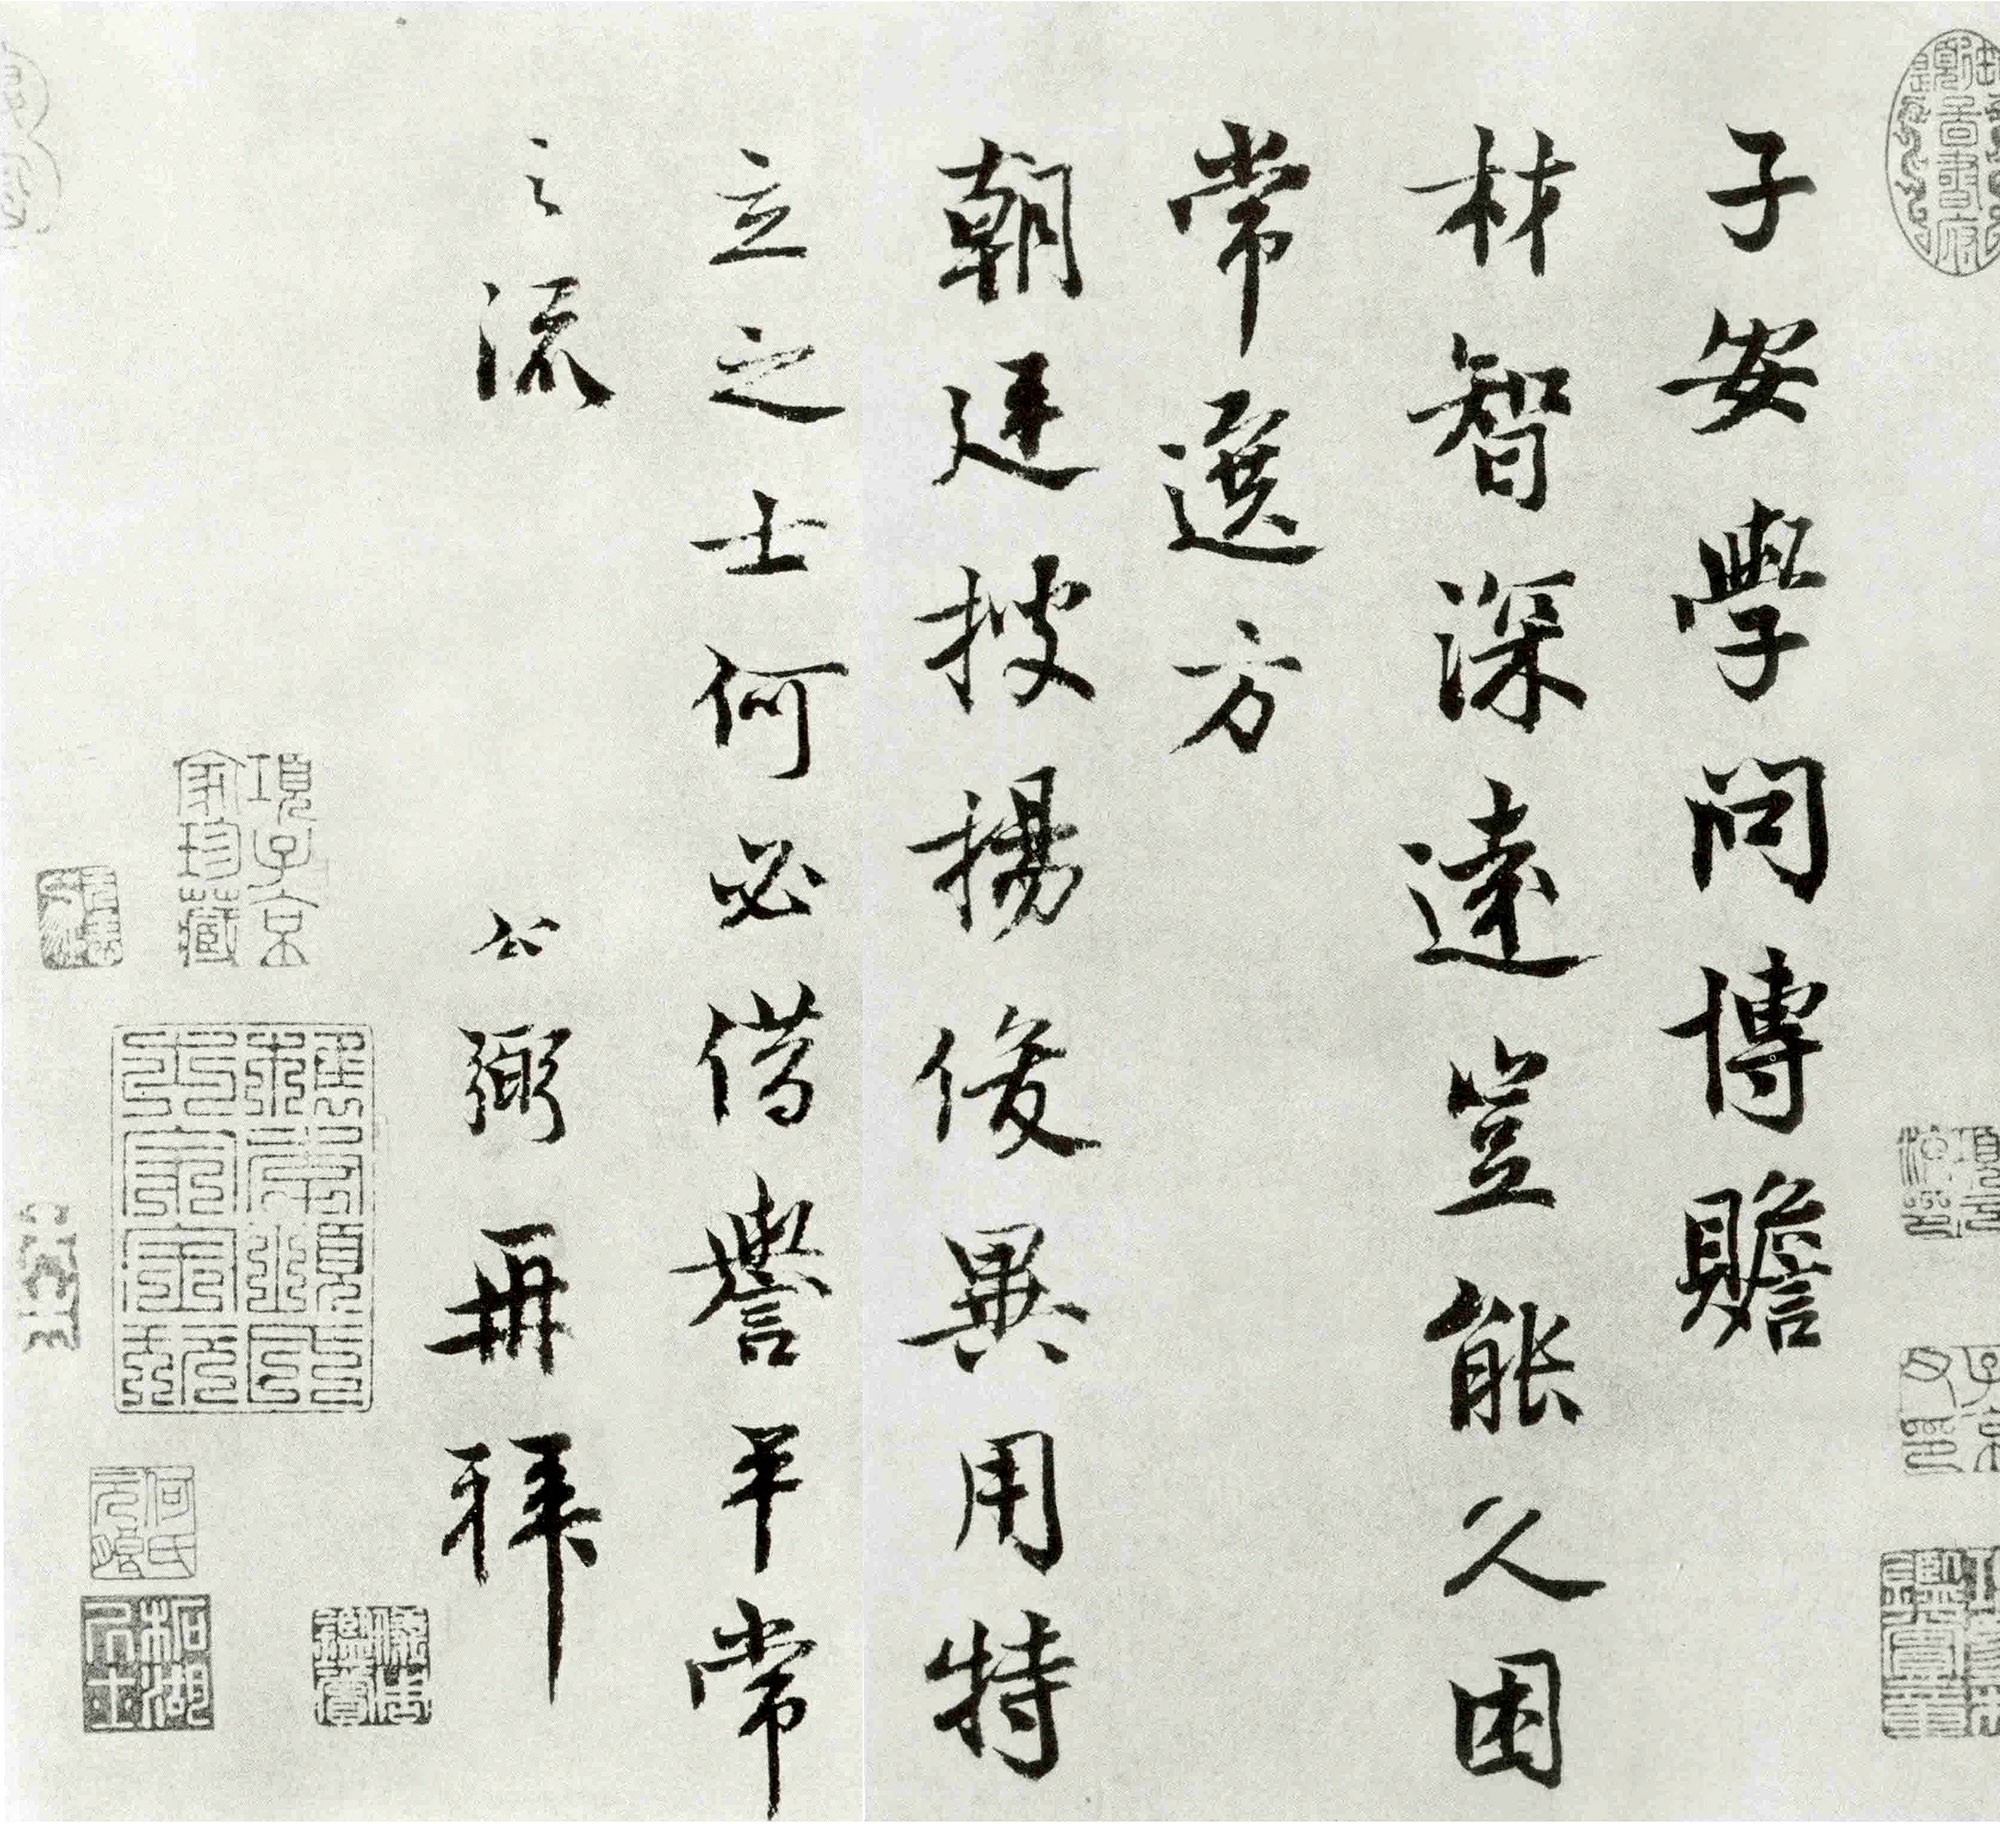 子安學問博贍
材智深遠豈能久困
常選方
朝廷披揚俊異用特
立之士何必借譽平常
之流
公弼再拜
項子京
家珍藏
何氏
元朗
柘湖
居士